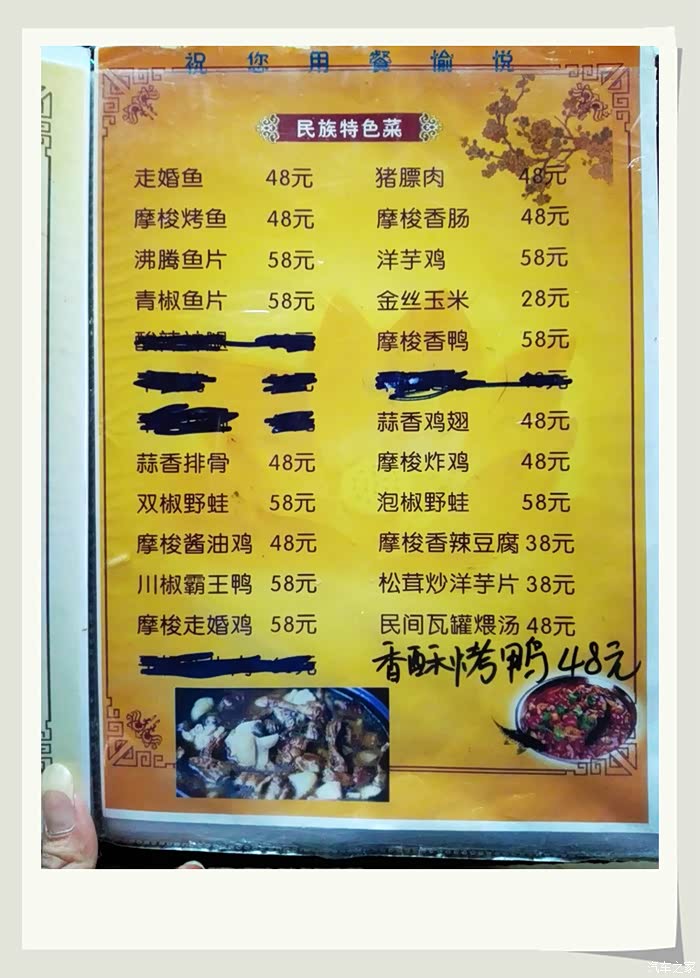 祝您用餐愉悦
民族特色菜
走婚鱼 48元 猪膘肉 48元
摩梭烤鱼 48元 摩梭香肠 48元
沸腾鱼片 58元 洋芋鸡 58元
青椒鱼片 58元 金丝玉米 28元
摩梭香鸭 58元
蒜香鸡翅 48元
蒜香排骨 48元 摩梭炸鸡 48元
双椒野蛙 58元 泡椒野蛙 58元
摩梭酱油鸡 48元 摩梭香辣豆腐 38元
川椒霸王鸭 58元 松茸炒洋芋片 38元
摩梭走婚鸡 58元 民间瓦罐煨汤 48元
香酥烤鸭 48元
汽车之家